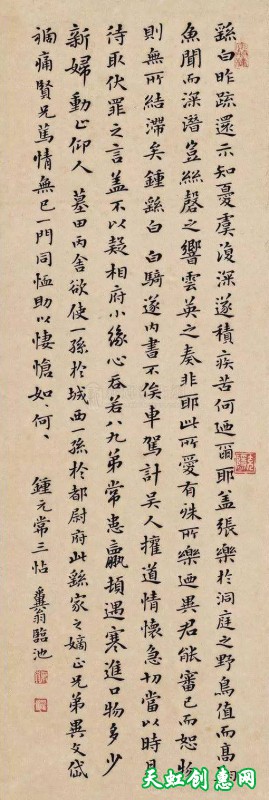 繇白昨疏還示知憂虞復深遂積疾苦何迺爾耶蓋張樂於洞庭之野鳥值而高翔
魚聞而深潛豈絲磬之響雲英之奏非耶此所愛有殊所樂迺異君能審己而恕物
則無所結滯矣鍾繇白 白騎遂內書不俟車駕計吳人權道情懷急切當以時月
待取伏罪之言蓋不以疑相府小緣心吞若八九弟常患羸頓遇寒進口物多少
新婦動止仰人 墓田丙舍欲使一孫於城西一孫於都尉府此繇家之嫡正兄弟異文岱
禍痛賢兄篤情無已一門同恤助以悽愴如、何、
鍾元常三帖 糞翁臨池
天虹创意网